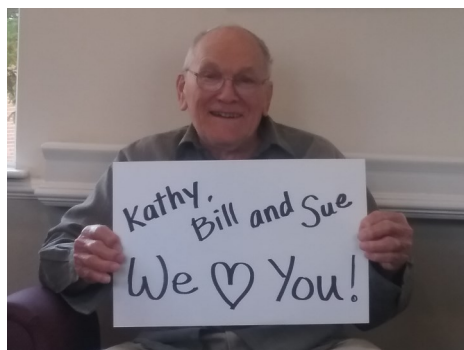 Kathy,
Bill and Sue
We ♡ You!